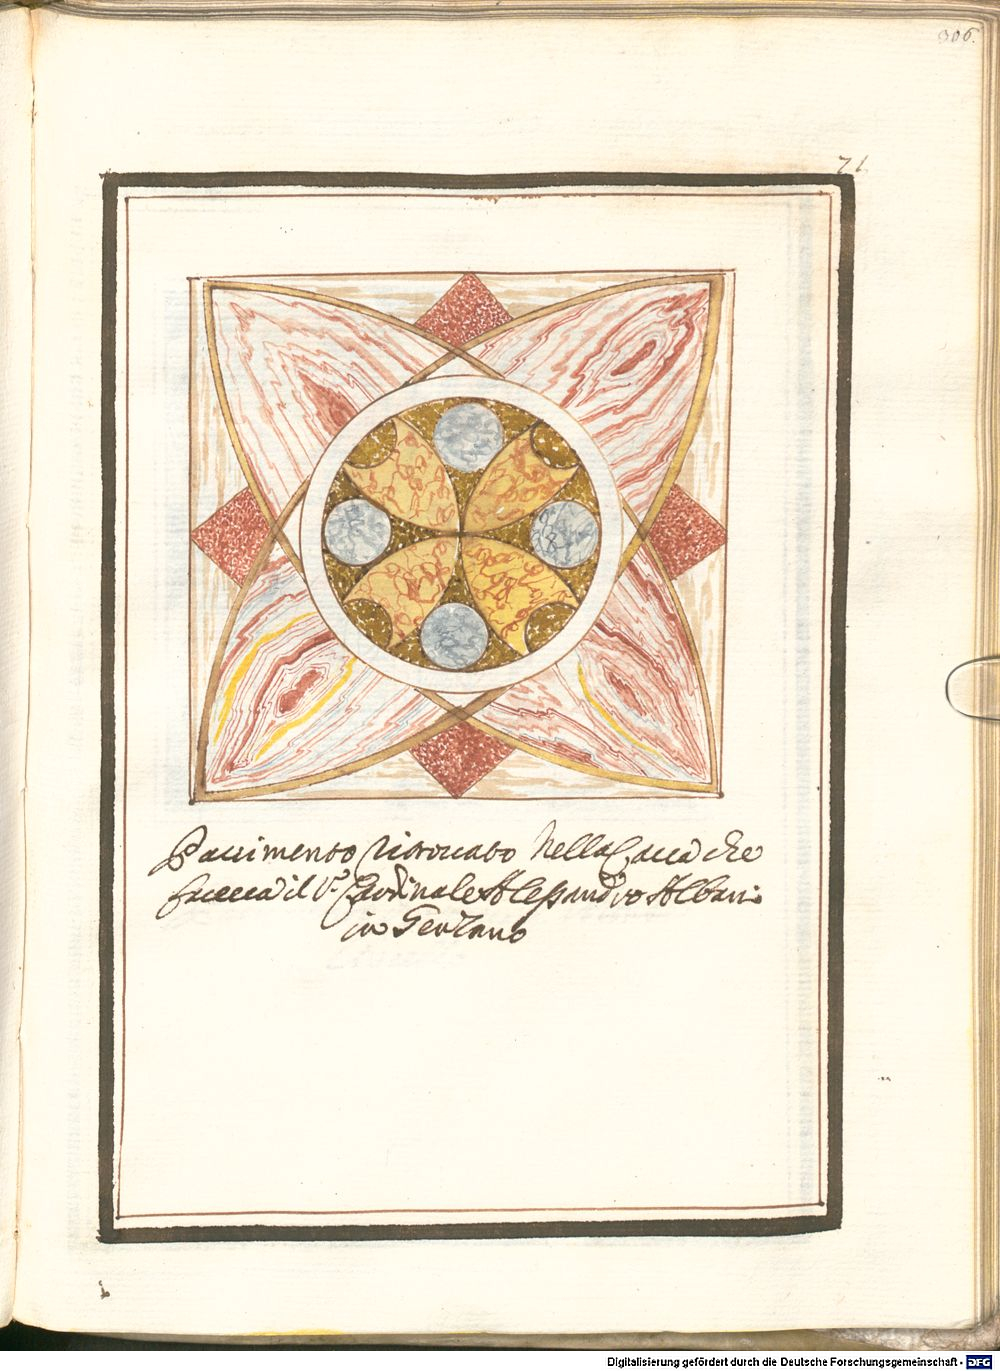 306.
71
Pavimento ritrovato Nella Cava che
faceva il S.r Cardinale Alessandro Albani
in Genzano
Digitalisierung gefördert durch die Deutsche Forschungsgemeinschaft - DFG